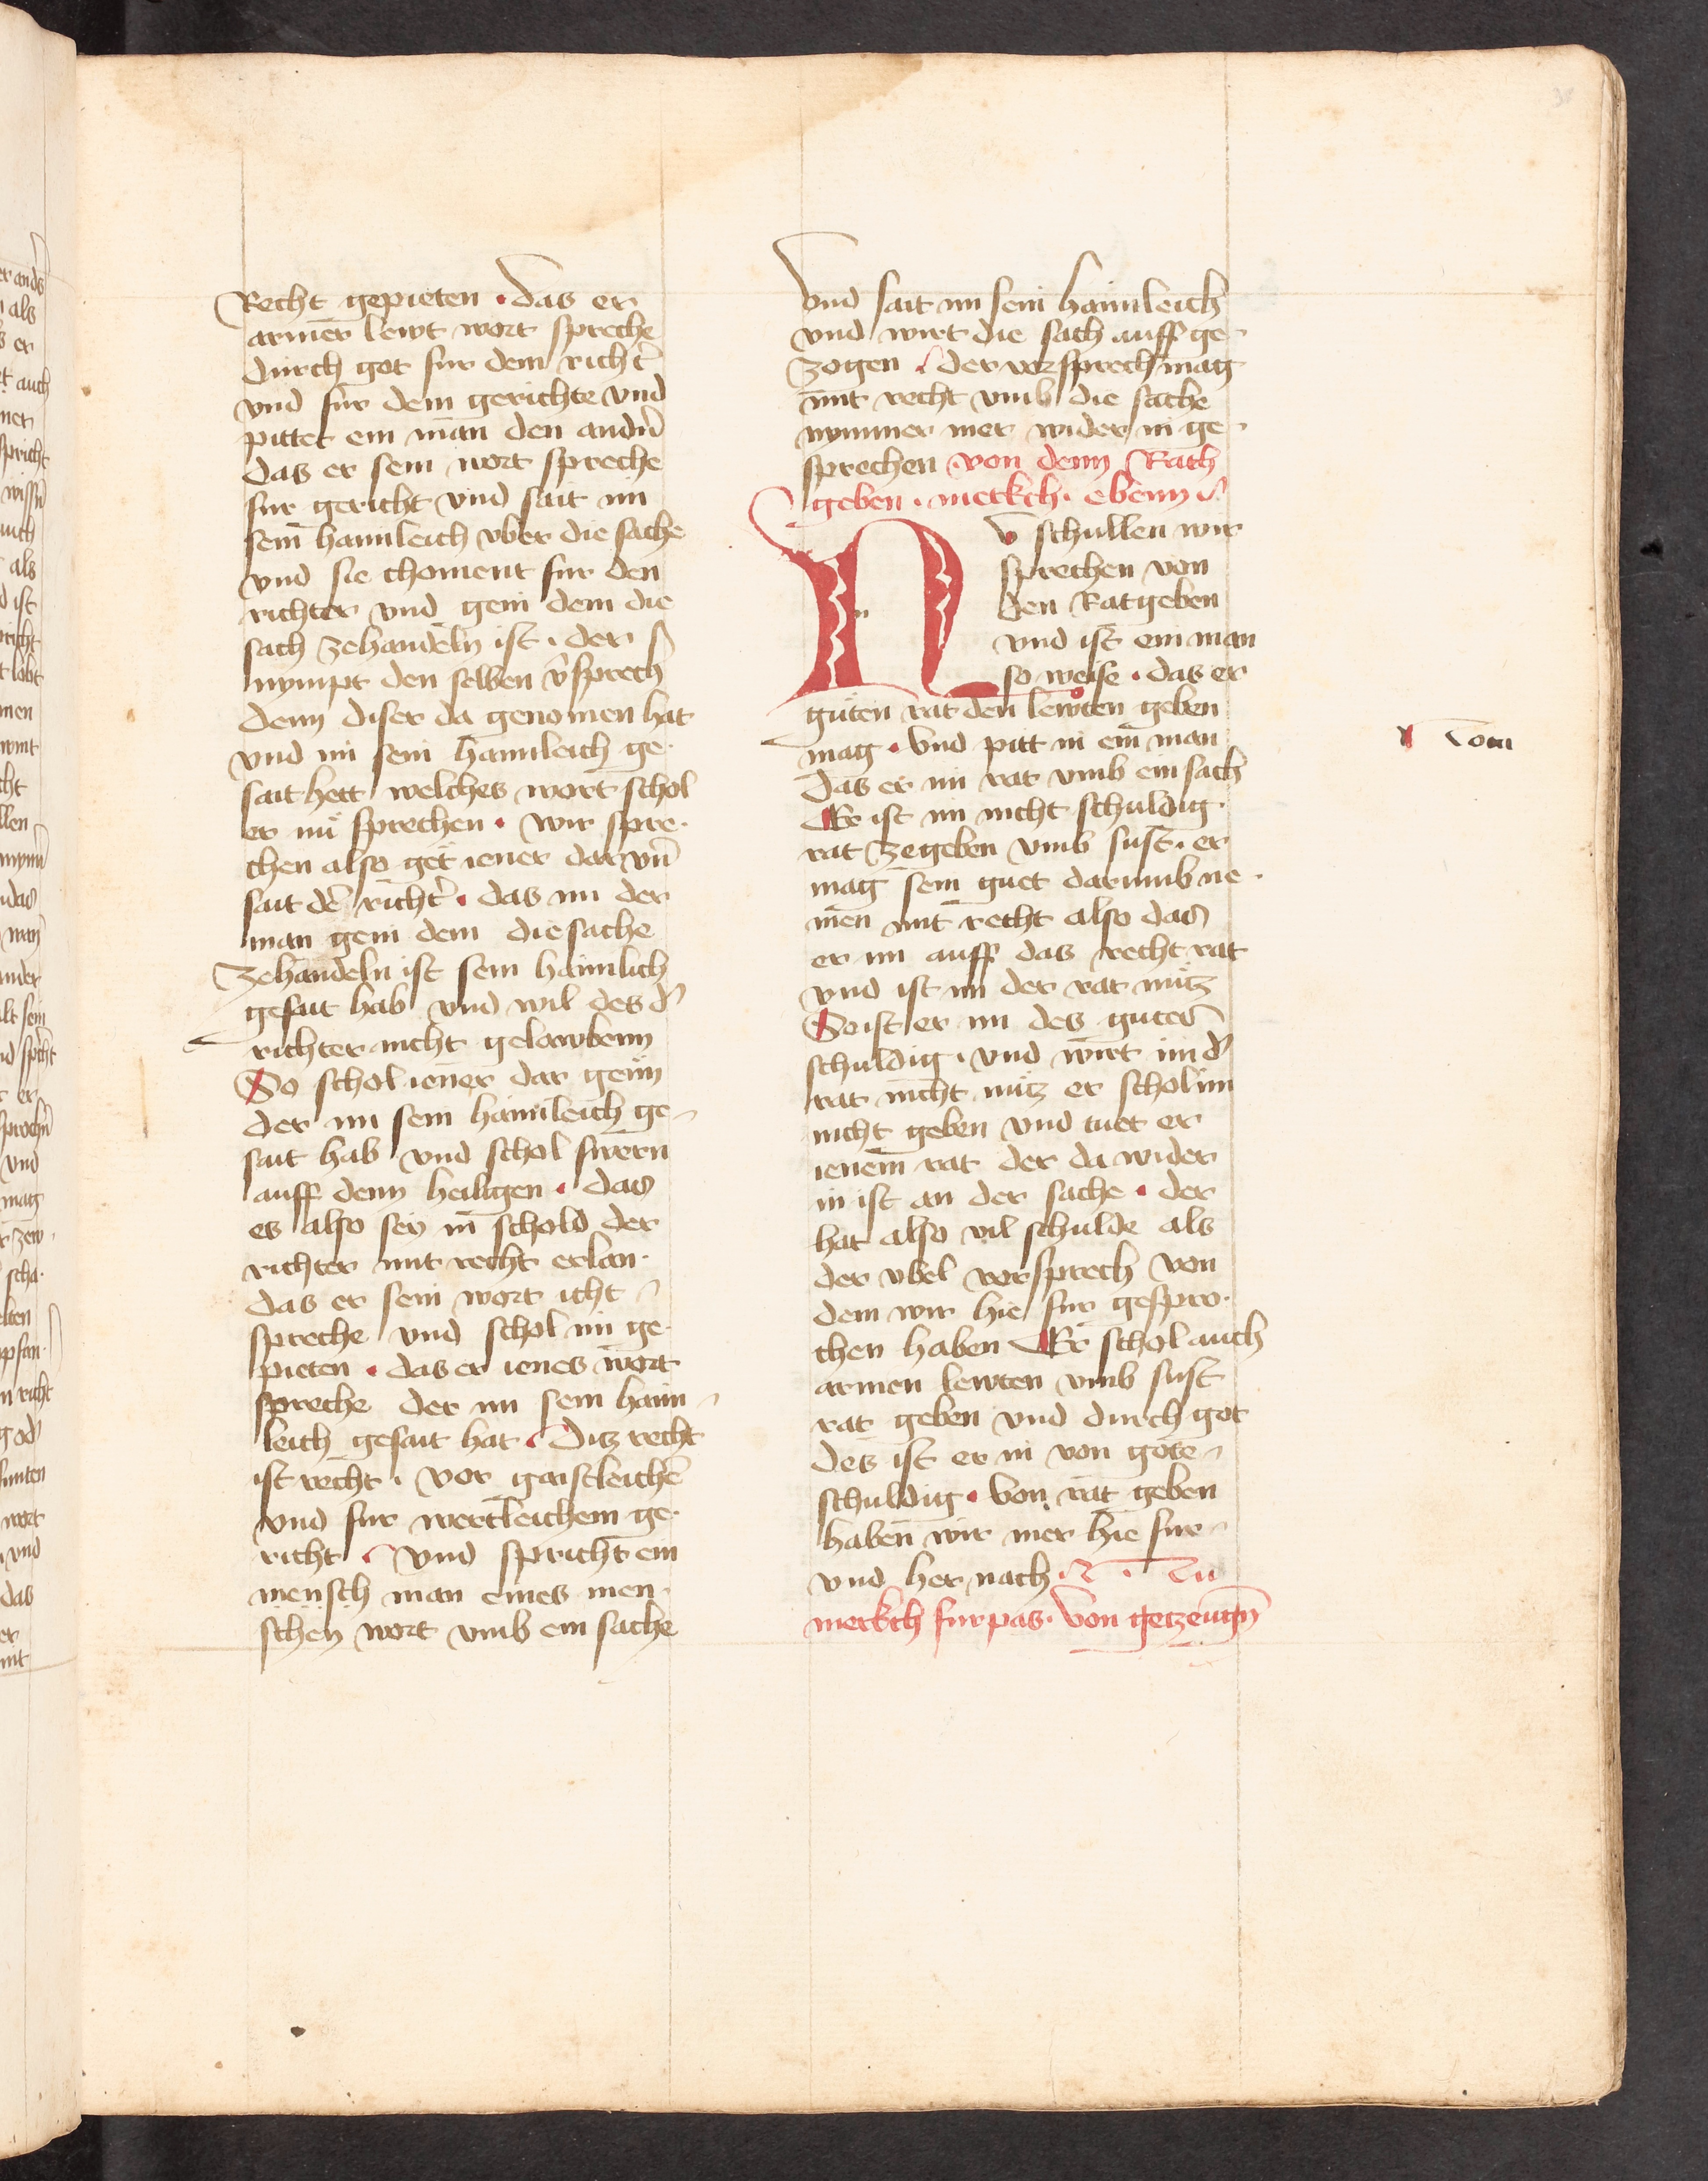 Recht gepieten · das er
armer lewt wort spreche
durch got fur dem richt̾
vnd fur dem gerichte vnd
pittet ein man den andn̄
das er sein wort spreche
fur gericht vnd sait im
sein haimleich vber die sache
vnd sie choment fur den
richter vnd gein dem die
sach zehandeln ist · der
nympt den selben v̾sprech̾
denn diser da genomen hat
vnd im sein haimleich ge·
sait hett welches wort schol
er nu sprechen · wir spre·
chen also get iener dar vn̄
sait dē richt̾ · das im der
man gein dem die sache
zehandeln ist sein haimlich
gesait hab vnd wil des d̾
richter nicht gelawbenn
So schol iener dar genn
der im sein haimleich ge-
sait hab vnd schol swern
auff denn heiligen · das
es also sey in schold der
richter mit recht erlan·
das er sein wort icht
spreche vnd schol im ge·
pieten · das er ienes wort
spreche der im sein haim-
leich gesait hat · Ditz recht
ist recht · vor gaistleichē
vnd fur wertleichem ge·
richt · vnd spricht ein
mensch man eines men·
schen wort vmb ein sache
vnd sait im sein haimleich
vnd wirt die sach auff ge-
zogen · der vorsprech mag
mit recht vmb die sache
nymmer mer wider in ge-
sprechen von denn Rath
geben · merkch · ebenn
N v schullen wir
sprechen von
den Ratgeben
vnd ist ein man
so weise · das er
guten rat den lewten geben
mag · Vnd pitt in ein man
das er im rat vmb ein sach
Er ist im nicht schuldig
rat zegeben vmb sust · er
mag sein guet darumb ne·
men mit recht also das
er im auff das recht rat
vnd ist im der rat nutz
So ist er im des gutes
schuldig · vnd wirt im d̾
rat nicht nutz er schol im
nicht geben vnd tuet er
ienem rat der da wider
in ist an der sache · der
hat also vil schulde als
der vbel vorsprech von
dem wir hie fur gespro·
chen haben Er schol auch
armen lewten vmb sust
rat geben vnd durch got
des ist er in von gote
schuldig · Von rat geben
haben wir mer hie fur
vnd her nach · Nu
merkch furpas · Von getzeugn̄